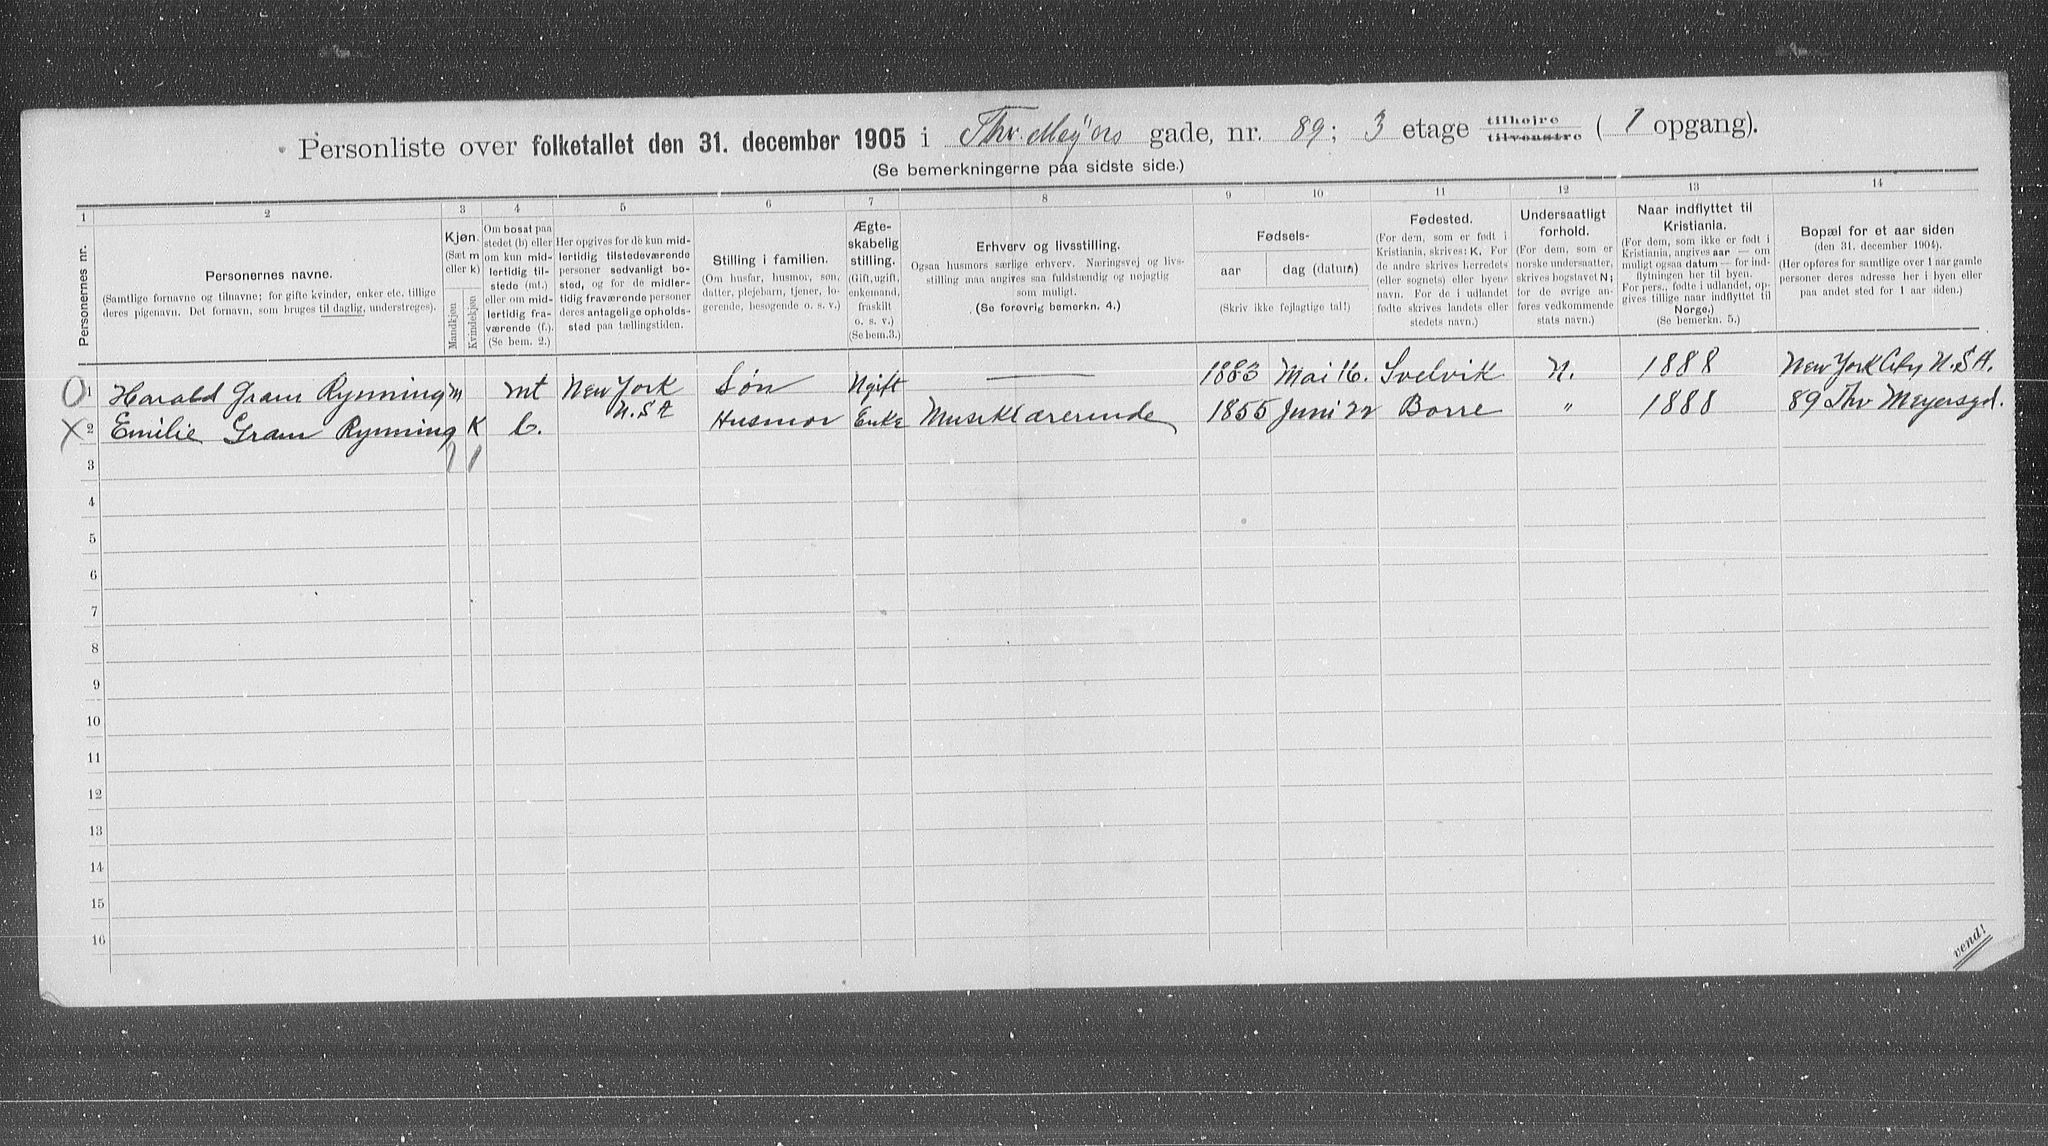 Personliste over folketallet den 31. december 1905 i Thv. Meÿers gade, nr. 89; 3 etage tilhøjre tilvenstre ( 1 opgang).
(Se bemerkningerne paa sidste side.)
1 2 3 4 5 6 7 8 9 10 11 12 13 14
Personernes nr.
Personernes navne.
(Samtlige fornavne og tilnavne; for gifte kvinder, enker etc. tillige
deres pigenavn. Det fornavn, som bruges til daglig, understreges).
Kjøn.
(Sæt m
eller k)
Mandkjøn
Kvindekjøn
Om bosat paa
stedet (b) eller
om kun mid-
lertidig til-
stede (mt.)
eller om mid-
lertidig fra-
værende (f.).
(Se bem. 2.)
Her opgives for de kun mid-
lertidig tilstedeværende
personer sedvanligt bo-
sted, og for de midler-
tidig fraværende personer
deres antagelige opholds-
sted paa tællingstiden.
Stilling i familien.
(Om husfar, husmor, søn,
datter, plejebarn, tjener, lo-
gerende, besøgende o. s. v.)
Ægte-
skabelig
stilling.
(Gift, ugift,
enkemand,
fraskilt
o. s. v.)
(Se bem. 3.)
Erhverv og livsstilling.
Ogsaa husmors særlige erhverv. Næringsvej og livs-
stilling maa angives saa fuldstændig og nøjagtig
som muligt.
(Se forøvrig bemerkn. 4.)
Fødsels-
aar
dag (datum)
(Skriv ikke fejlagtige tal!)
Fødested.
(For dem, som er født i
Kristiania, skrives: K. For
de andre skrives herredets
(eller sognets) eller byens
navn. For de i udlandet
fødte skrives landets eller
stedets navn.)
Undersaatligt
forhold.
(For dem, som er
norske undersaatter,
skrives bogstavet N;
for de øvrige an-
føres vedkommende
stats navn.)
Naar indflyttet til
Kristiania.
(For dem, som ikke er født i
Kristiania, angives aar — om
muligt ogsaa datum — for ind-
flytningen her til byen.
For pers., fødte i udlandet, op-
gives tillige naar indflyttet til
Norge.)
(Se bemerkn. 5.)
Bopæl for et aar siden
(den 31. december 1904).
(Her opføres for samtlige over 1 aar gamle
personer deres adresse her i byen eller
paa andet sted for 1 aar siden.)
1 Harald Gram Rynning m mt New York U.S.A Søn Ugift — 1883 Mai 16. Svelvik N. 1888 New York City U.S.A.
2 Emilie Gram Rynning K b. Husmor Enke Musiklærerinde 1855 Juni 22 Borre " 1888 89 Thv Meyersgd.
3 1 1
4
5
6
7
8
9
10
11
12
13
14
15
16
vend!